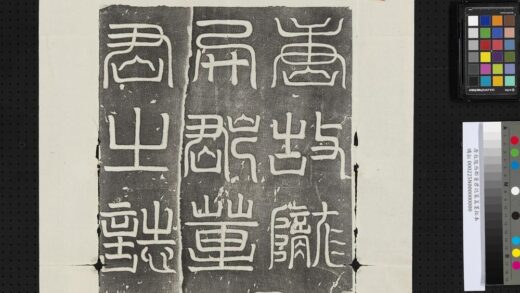 唐故隴
西郡董
君之誌